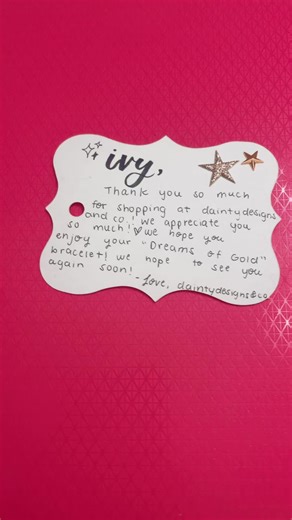 ivy,
Thank you so much
for shopping at daintydesigns
and co! We appreciate you
so much! ♡ We hope you
enjoy your "Dreams of Gold"
bracelet! We hope to see you
again soon! - Love, daintydesigns&co